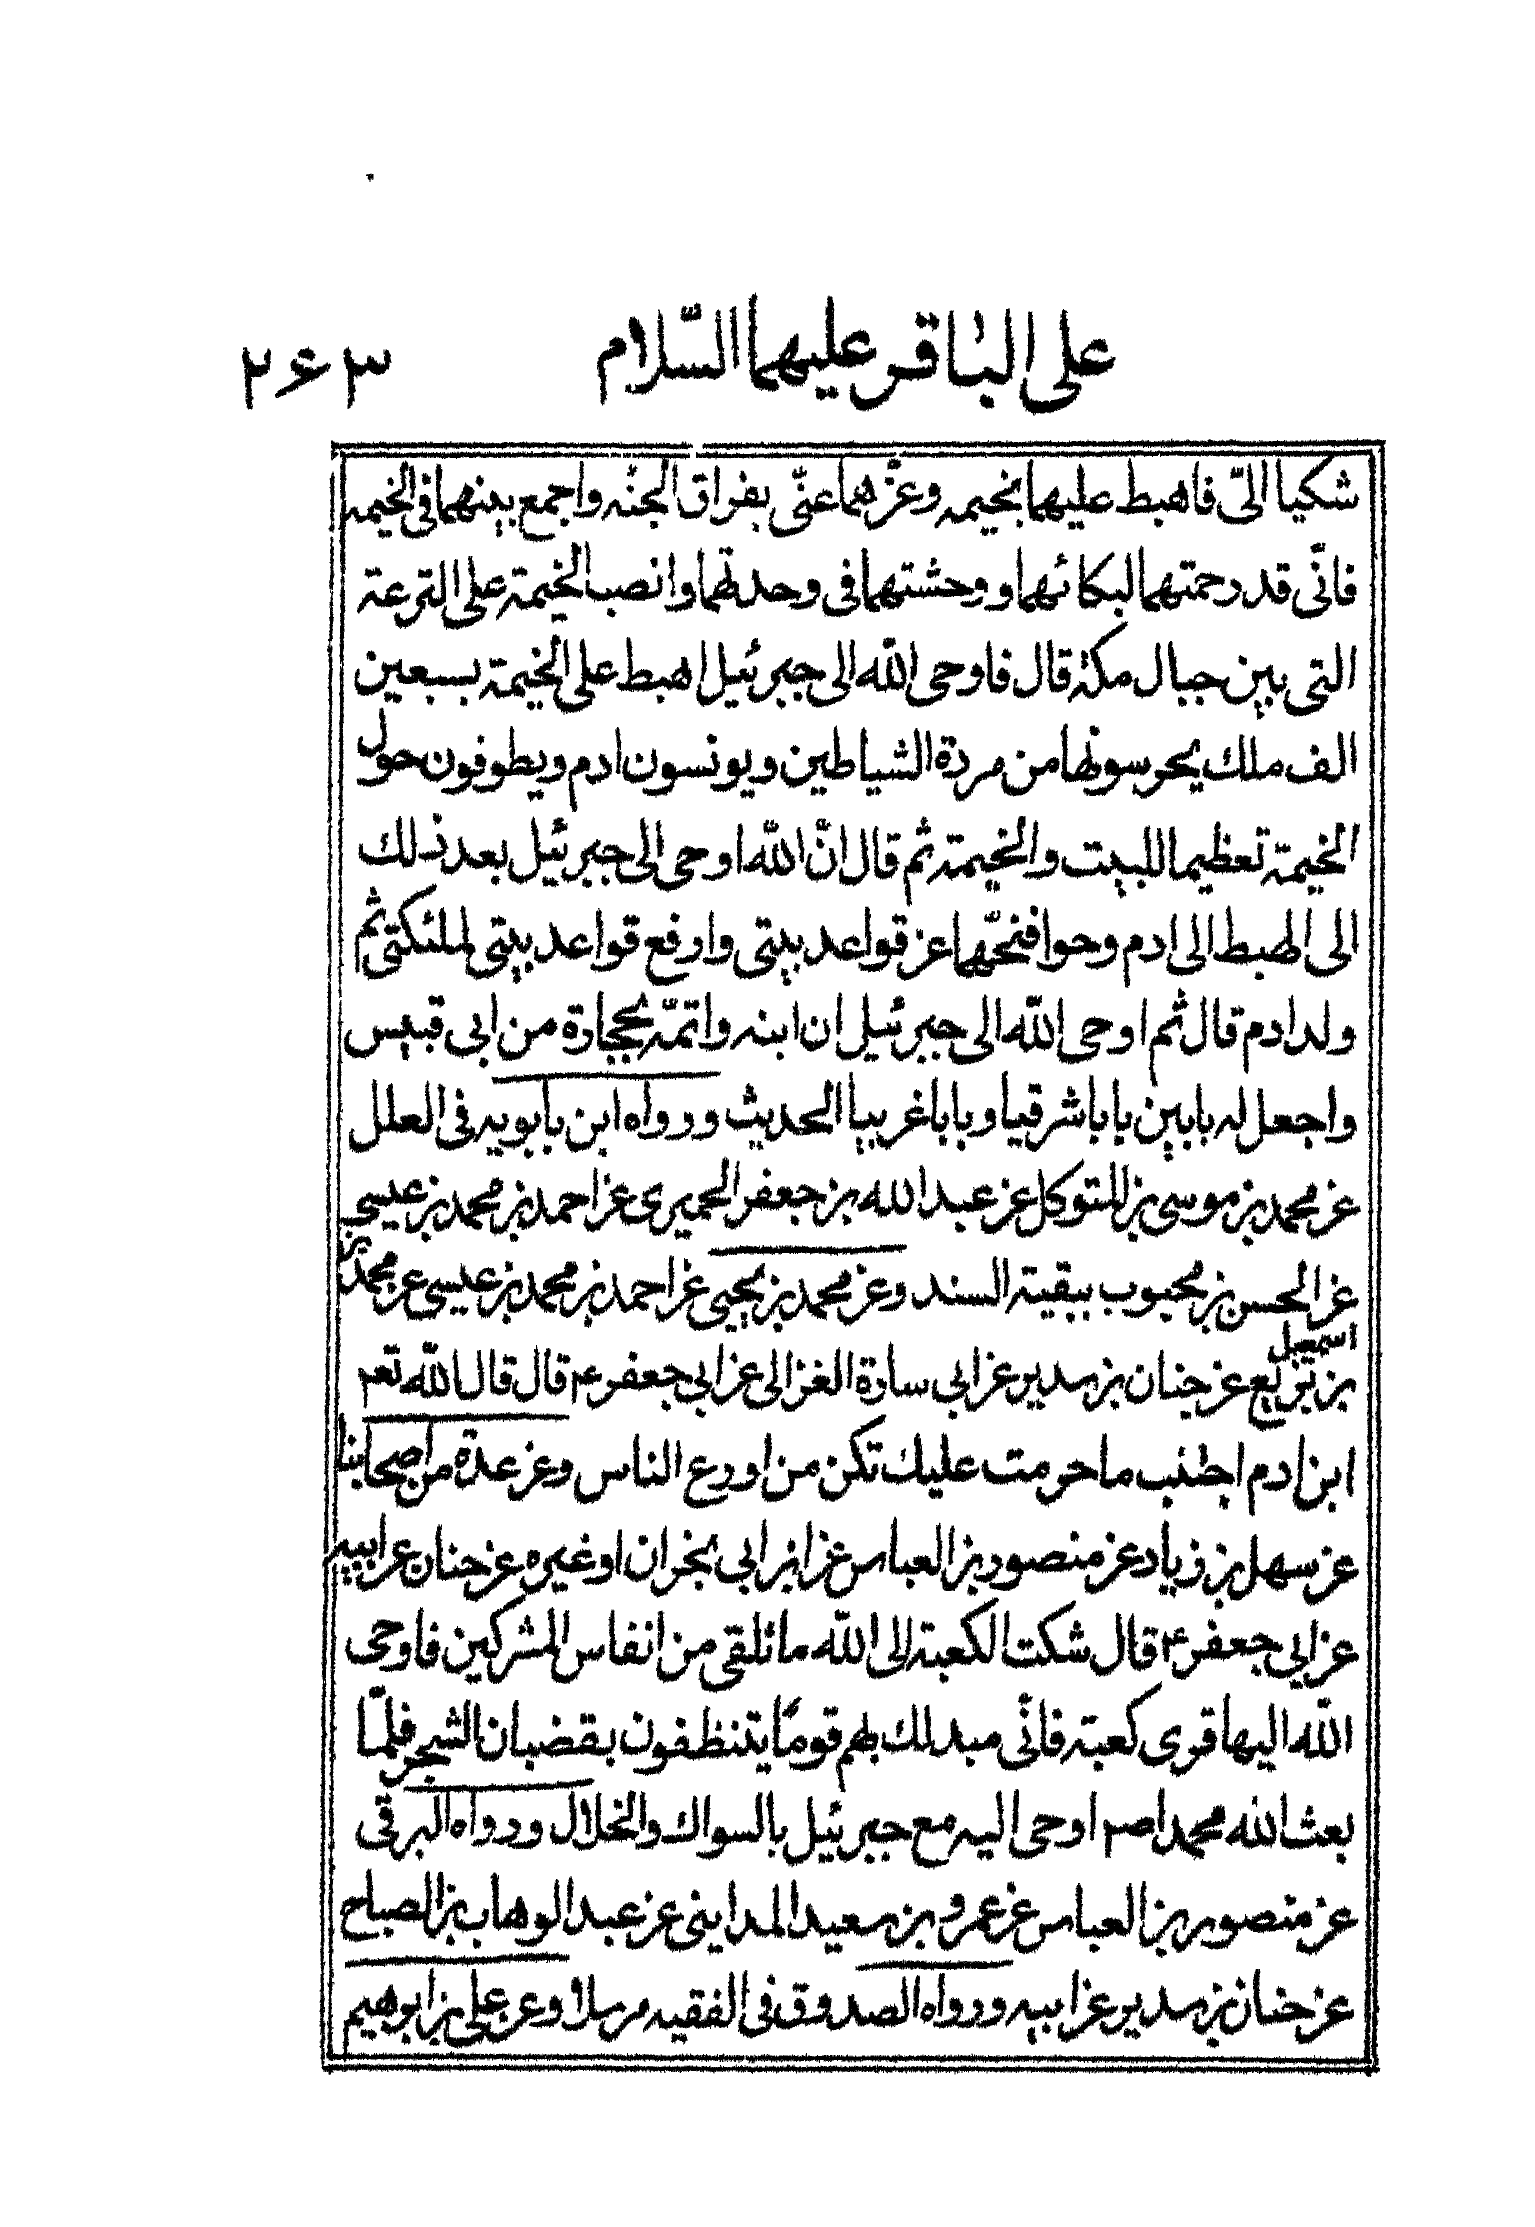 على الباقر عليهما السّلام ٢۶٣
شكيا الىّ فاهبط عليهما بخيمه وعزّهما عنّى بفراق الجنّه واجمع بينهما فى الخيمه
فانّى قد رحمتهما لبكائهما ووحشتهما فى وحدتهما وانصب الخيمة على الترعة
التى بين جبال مكّة قال فاوحى الله الى جبرئيل اهبط على الخيمة بسبعين
الف ملك يحرسونها من مردة الشياطين ويونسون ادم ويطوفون حول
الخيمة تعظيما للبيت والخيمة ثم قال انّ الله اوحى الى جبرئيل بعد ذلك
الى اهبط الى ادم وحوا فنحّهما عن قواعد بيتى وارفع قواعد بيتى لملئكتى ثم
ولد ادم قال ثم اوحى الله الى جبرئيل ان ابنه واتمّه بحجارة من ابى قبيس
واجعل له بابين بابا شرقيا وبابا غربيا الحديث ورواه ابن بابويه فى العلل
عن محمد بن موسى بن المتوكل عن عبد الله بن جعفر الحميرى عن احمد بن محمد بن عيسى
عن الحسن بن محبوب ببقية السند وعن محمد بن يحيى عن احمد بن محمد بن عيسى عن محمد بن
اسمعيل
بن بزيع عن حنان بن سدير عن ابى سارة الغزالى عن ابى جعفر ع قال قال الله تعر
ابن ادم اجتنب ما حرمت عليك تكن من اورع الناس وعن عدة من اصحابنا
عن سهل بن زياد عن منصور بن العباس عن ابن ابى نجران او غيره عن حنان عن ابيه
عن ابى جعفر ع قال شكت الكعبة الى الله ما تلقى من انفاس المشركين فاوحى
الله اليها قرى كعبة فانّى مبدلك بهم قومًا يتنظفون بقضبان الشجر فلمّا
بعث الله محمدا ص اوحى اليه مع جبرئيل بالسواك والخلال ورواه البرقى
عن منصور بن العباس عن عمرو بن سعيد المداينى عن عبد الوهاب بن الصباح
عن حنان بن سدير عن ابيه ورواه الصدوق فى الفقيه مرسلا وعن على بن ابرهيم